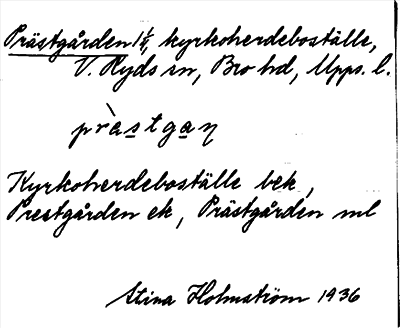 Prästgården 1/1, kyrkoherdeboställe,
V. Ryds sn, Bro hd, Upps. l.
pr̀a̲stga̲ŋ
Kyrkoherdeboställe bek,
Prestgården ek, Prästgården ml
Stina Holmström 1936